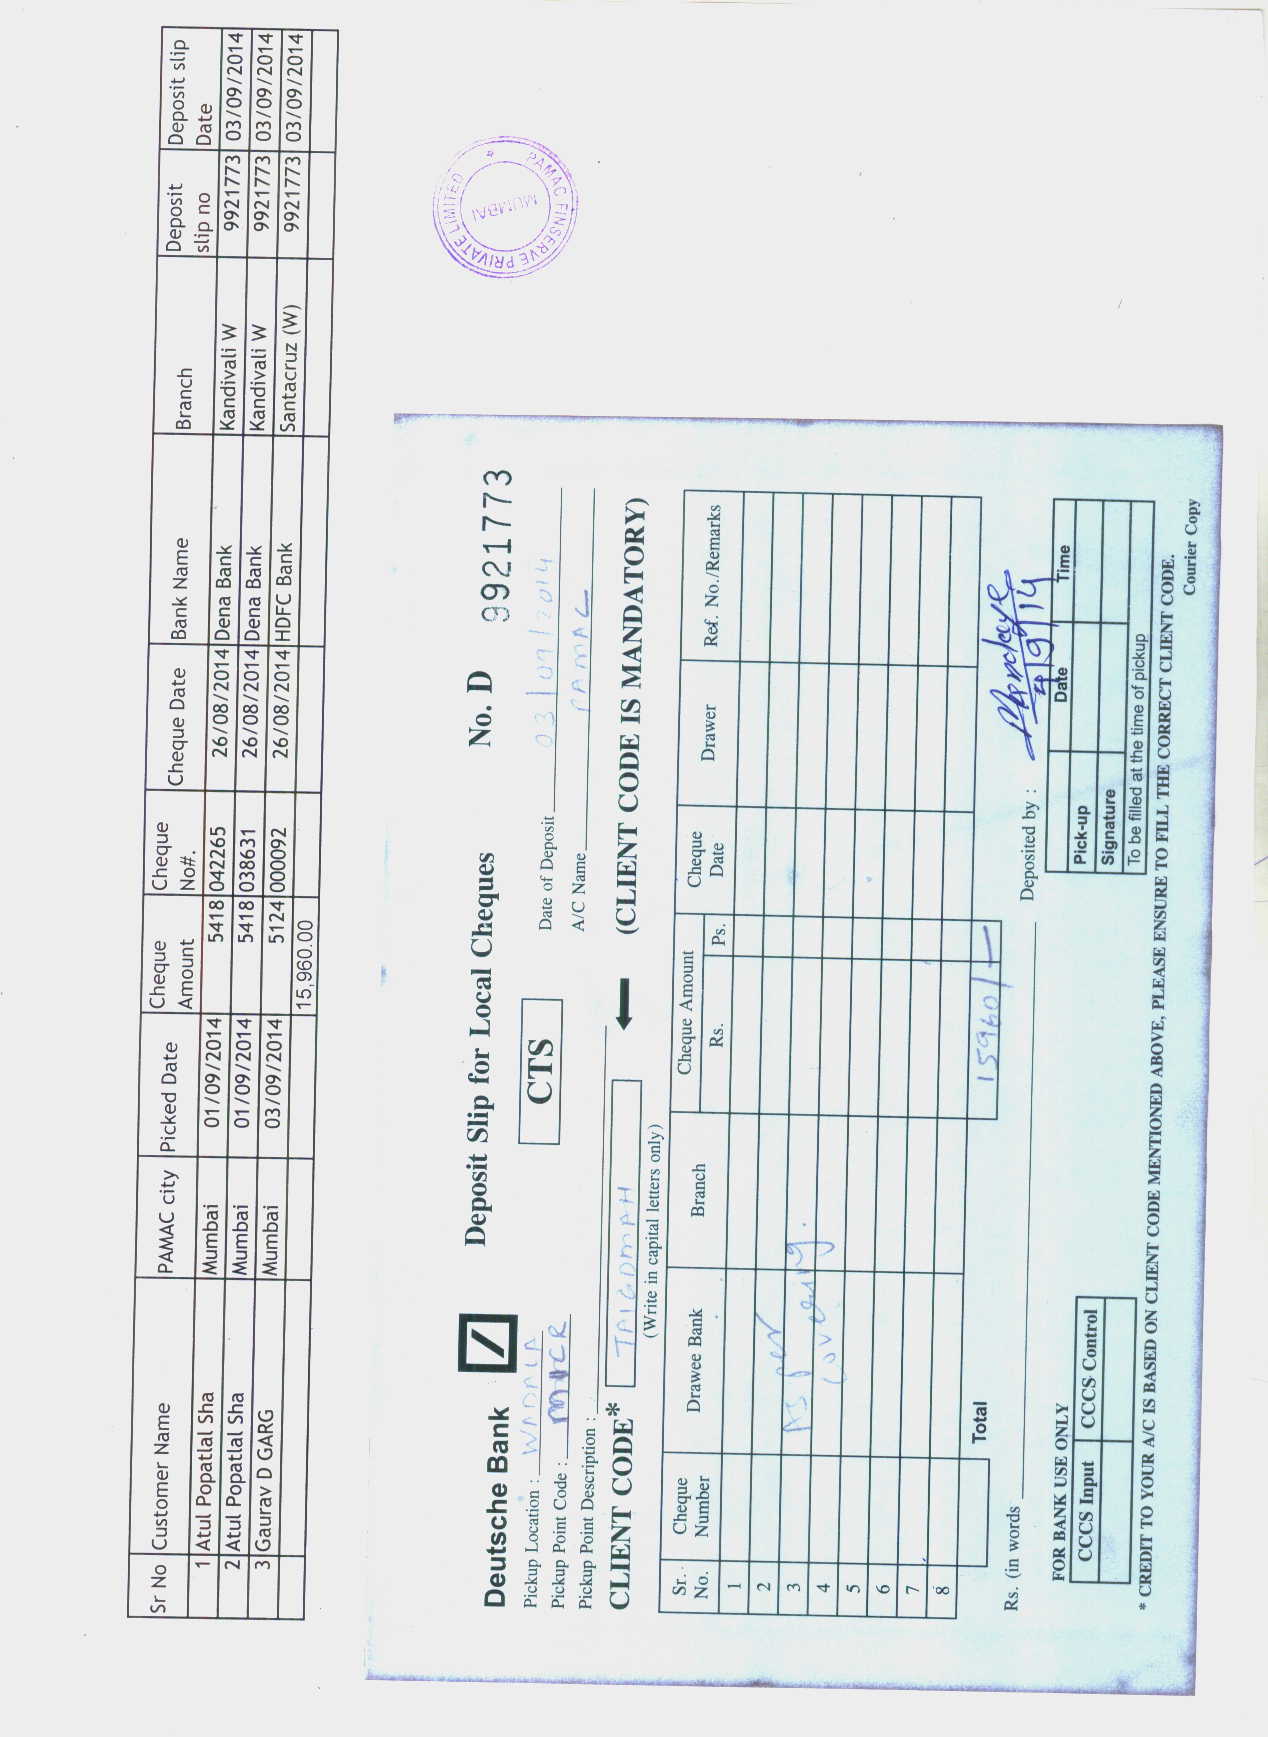 Sr No Customer Name PAMAC city Picked Date Cheque Amount Cheque No#. Cheque Date Bank Name Branch Deposit slip no Deposit slip Date
1 Atul Popatlal Sha Mumbai 01/09/2014 5418 042265 26/08/2014 Dena Bank Kandivali W 9921773 03/09/2014
2 Atul Popatlal Sha Mumbai 01/09/2014 5418 038631 26/08/2014 Dena Bank Kandivali W 9921773 03/09/2014
3 Gaurav D GARG Mumbai 03/09/2014 5124 000092 26/08/2014 HDFC Bank Santacruz (W) 9921773 03/09/2014
15,960.00
PAMAC FINSERVE PRIVATE LIMITED *
MUMBAI
Deutsche Bank Deposit Slip for Local Cheques No. D 9921773
Pickup Location : WADALA CTS Date of Deposit 03/09/2014
Pickup Point Code : MICR A/C Name PAMAC
Pickup Point Description :
CLIENT CODE* (CLIENT CODE IS MANDATORY)
(Write in capital letters only)
Sr. No. Cheque Number Drawee Bank Branch Cheque Amount Rs. Ps. Cheque Date Drawer Ref. No./Remarks
1
2
3 As per
4 covering.
5
6
7
8
Total 15960/-
Rs. (in words Deposited by :
4/9/14
FOR BANK USE ONLY
CCCS Input CCCS Control
Pick-up Date Time
Signature
To be filled at the time of pickup
* CREDIT TO YOUR A/C IS BASED ON CLIENT CODE MENTIONED ABOVE, PLEASE ENSURE TO FILL THE CORRECT CLIENT CODE.
Courier Copy